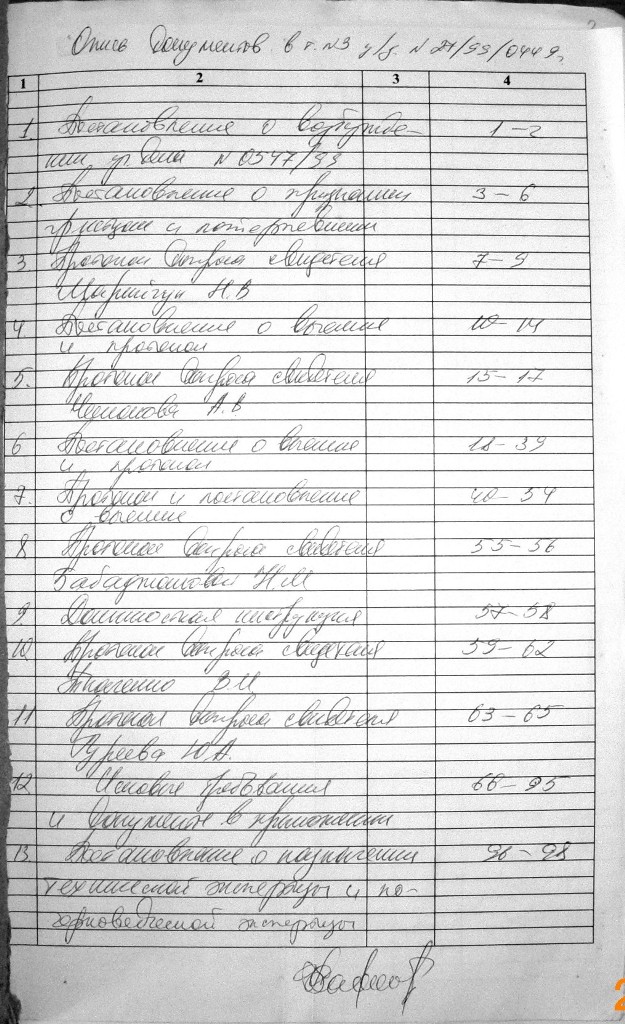 Опись документов в т. №3 у/д. №
1 2 3 4
1. Постановление о возбужде- 1–2
нии уг. дела №0547/99
2. Постановление о признании 3–6
и потерпевшим
3. Протокол допроса свидетеля 7–9
Н.В
4 Постановление о выемке 10–14
и протокол
5. Протокол допроса свидетеля 15–17
А.В
6 Постановление о выемке 18–39
и протокол
7. Протокол и постановление 40–54
о выемке
8 Протокол допроса свидетеля 55–56
Бабаджановой Н.М
9 Должностная инструкция 57–58
10 Протокол допроса свидетеля 59–62
Ткаченко В.И
11 Протокол допроса свидетеля 63–65
Гуреева Ю.А.
12 Исковые требования 66–95
и документы в приложении
13. Постановление о назначении 96–98
технической экспертизы и по-
черковедческой экспертизы
2